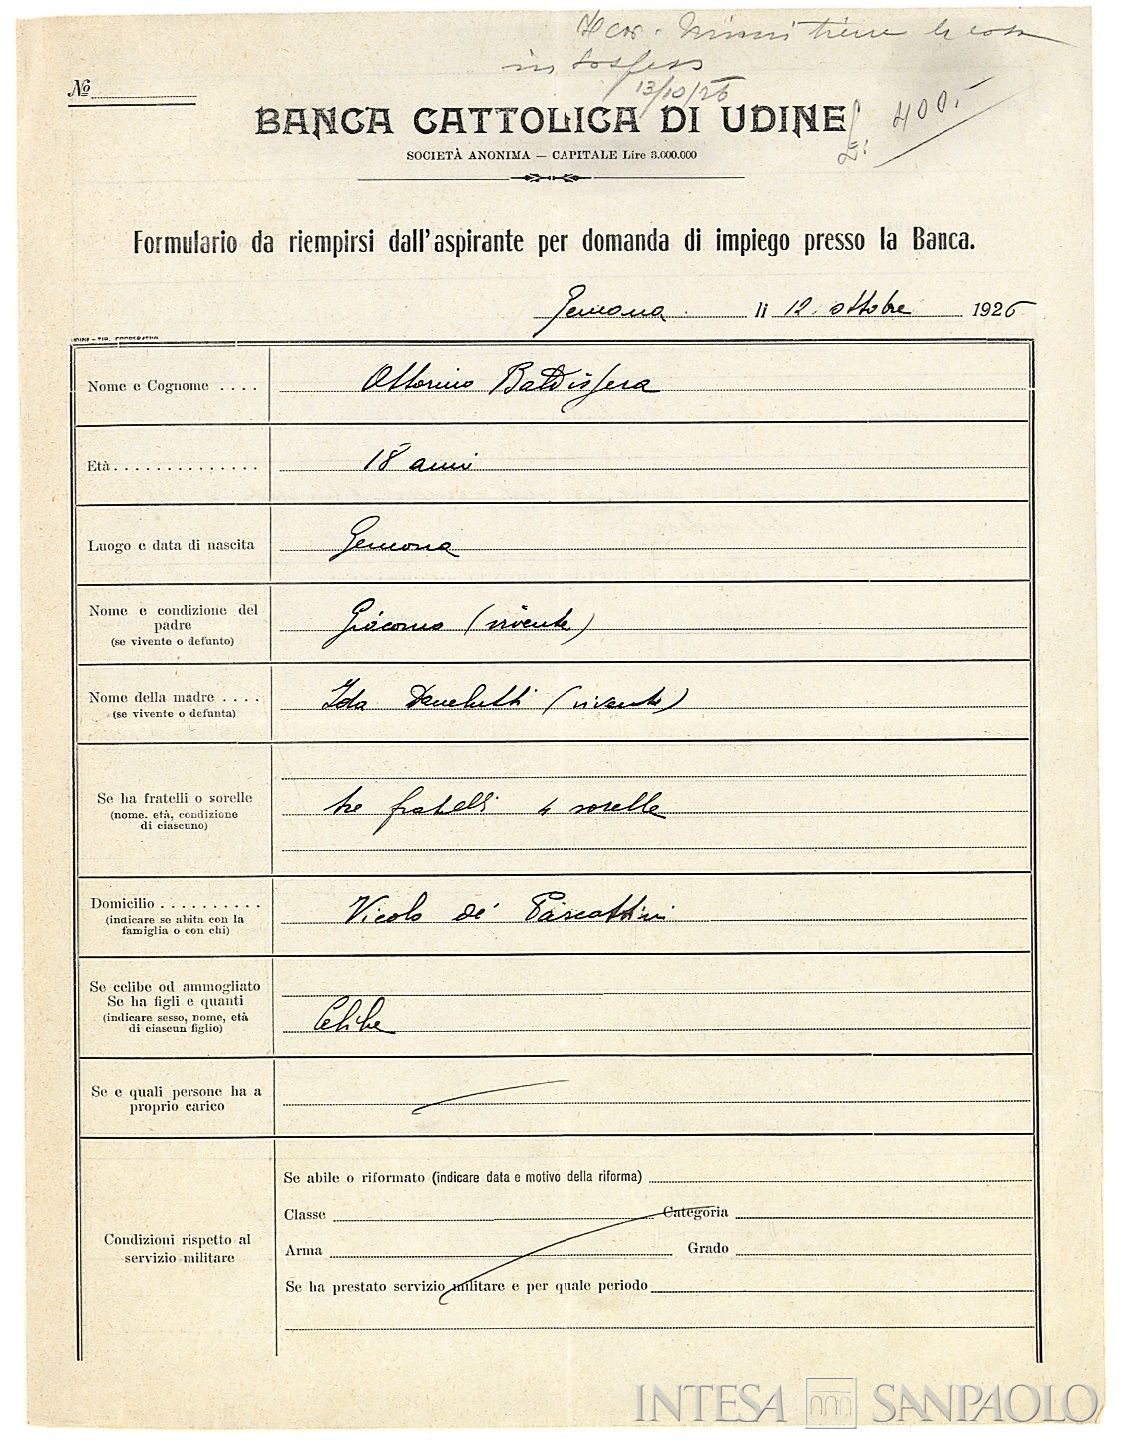 tiene la cosa
in sospeso
13/10/26
No
BANCA CATTOLICA DI UDINE
£: 400.-
SOCIETÀ ANONIMA — CAPITALE Lire 3.000.000
Formulario da riempirsi dall'aspirante per domanda di impiego presso la Banca.
Gemona li 12 ottobre 1926
Nome e Cognome .... Ottorino Baldissera
Età.............. 18 anni
Luogo e data di nascita Gemona
Nome e condizione del
padre Giacomo (vivente)
(se vivente o defunto)
Nome della madre .... Ida (vivente)
(se vivente o defunta)
Se ha fratelli o sorelle tre fratelli 4 sorelle
(nome, età, condizione
di ciascuno)
Domicilio .......... Vicolo de'
(indicare se abita con la
famiglia o con chi)
Se celibe od ammogliato
Se ha figli e quanti
(indicare sesso, nome, età Celibe
di ciascun figlio)
Se e quali persone ha a
proprio carico
Condizioni rispetto al
servizio militare
Se abile o riformato (indicare data e motivo della riforma)
Classe Categoria
Arma Grado
Se ha prestato servizio militare e per quale periodo
INTESA SANPAOLO